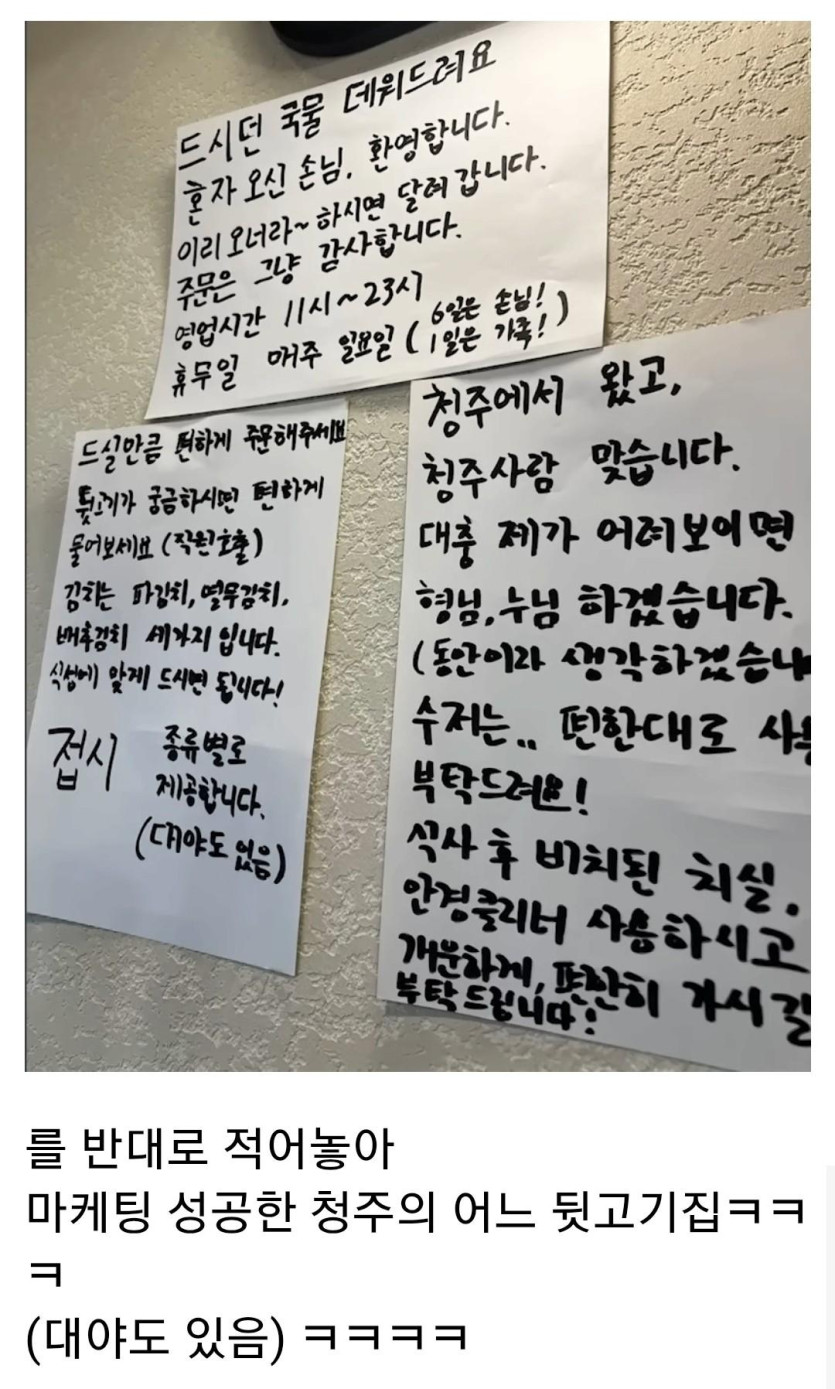 드시던 국물 데워드려요
혼자 오신 손님. 환영합니다.
이리 오너라~ 하시면 달려 갑니다.
주문은 그냥 감사합니다.
영업시간 11시~23시
휴무일 매주 일요일 (6일은 손님! 1일은 가족!)
드실만큼 편하게 주문해주세요
뒷고기가 궁금하시면 편하게
물어보세요 (직원호출)
김치는 파김치, 열무김치,
배추김치 세가지 입니다.
식성에 맞게 드시면 됩니다!
접시 종류별로
제공합니다.
(대야도 있음)
청주에서 왔고,
청주사람 맞습니다.
대충 제가 어려보이면
형님, 누님 하겠습니다.
(동안이라 생각하겠습니
수저는.. 편한대로 사용
부탁드려요!
식사 후 비치된 치실,
안경클리너 사용하시고
개운하게, 편안히 가시길
부탁드립니다!
를 반대로 적어놓아
마케팅 성공한 청주의 어느 뒷고기집ㅋㅋ
ㅋ
(대야도 있음) ㅋㅋㅋㅋ